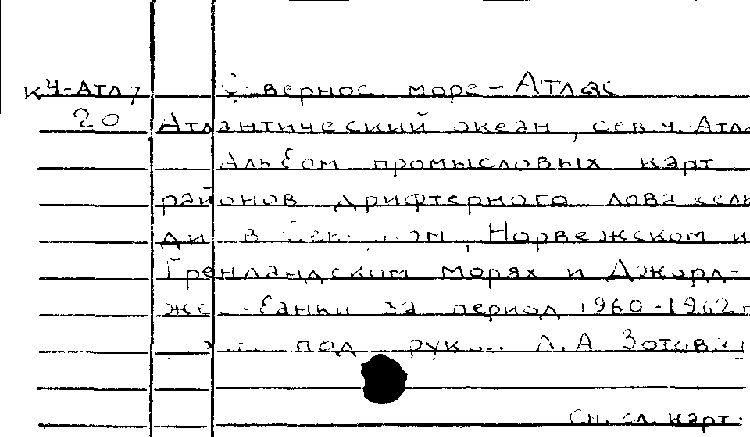 кЧ-Атл/ Северное море - Атлас
20 Атлантический океан, сев.ч. Атл
Альбом промысловых карт
районов дрифтерного лова сель
ди в Северном, Норвежском и
Гренландском морях и Джорд-
жес банки за период 1960-1962 г
под рук. Л.А. Зотова
См. сл. карт.